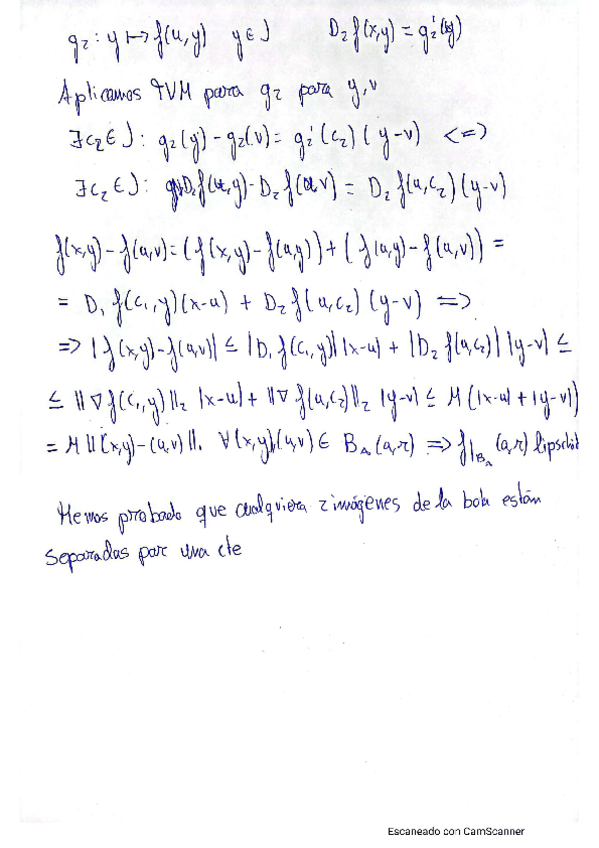 g₂: y ↦ f(u,y) y ∈ J D₂f(x,y) = g₂'(y)
Aplicamos TVM para g₂ para y,v
∃c₂∈J: g₂(y) - g₂(v) = g₂'(c₂)(y-v) <=>
∃c₂∈J: D₂f(u,y) - D₂f(u,v) = D₂f(u,c₂)(y-v)
f(x,y) - f(u,v) = (f(x,y) - f(u,y)) + (f(u,y) - f(u,v)) =
= D₁f(c₁,y)(x-u) + D₂f(u,c₂)(y-v) =>
=> |f(x,y) - f(u,v)| ≤ |D₁f(c₁,y)||x-u| + |D₂f(u,c₂)||y-v| ≤
≤ ||∇f(c₁,y)||₂ |x-u| + ||∇f(u,c₂)||₂ |y-v| ≤ M(|x-u| + |y-v|)
= M||(x,y) - (u,v)||₁ ∀(x,y),(u,v) ∈ B_A(a,r) => f|_{B_A}(a,r) lipschit
Hemos probado que cualquiera 2 imágenes de la bola están
separadas por una cte
Escaneado con CamScanner